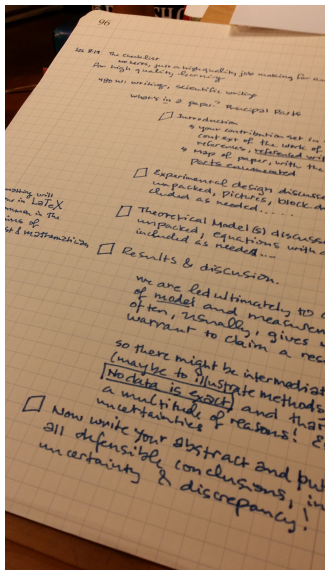 96
The Checklist
no hero, just a high quality job making for a
for high quality learning.
writing, scientific writing
what's in a paper? Principal Parts
Introduction
your contribution set in
context of the work of
references, referenced
map of paper, with the
parts enumerated
Experimental design discuss
unpacked, pictures, block d
cluded as needed.....
Theoretical Model(s) discuss
unpacked, equations with
included as needed...
will
in LaTeX
in the
of
& mathematician
Results & discussion.
we are led ultimately to
of model and measurem
often, usually, gives
warrant to claim a res
so there might be intermediat
(maybe to illustrate methods
No data is exact, and that
a multitude of reasons!
uncertainties
Now write your abstract and put
all defensible conclusions, in
uncertainty & discrepancy!